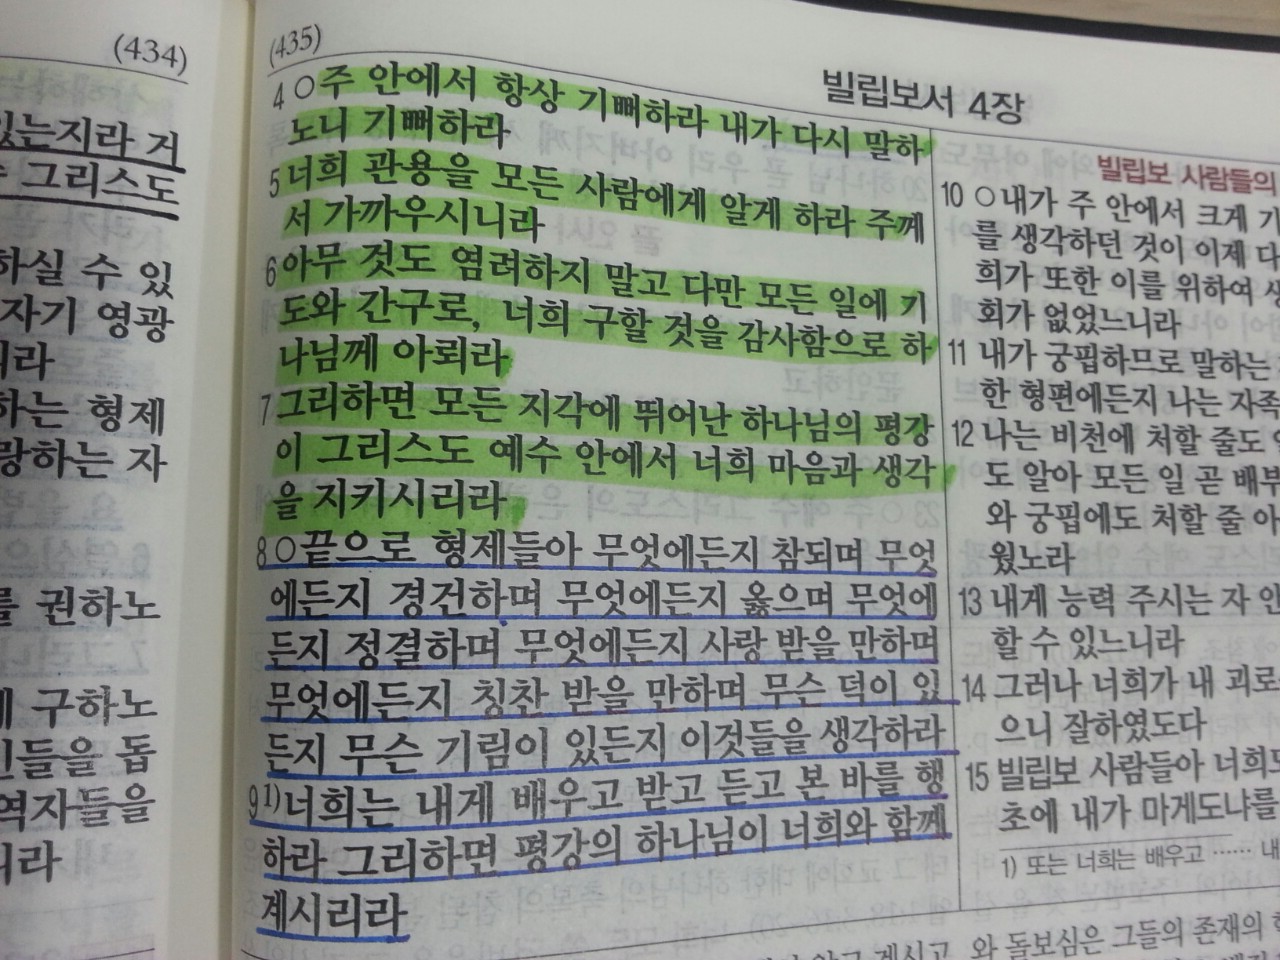 (434)
있는지라 거
그리스도
하실 수 있
자기 영광
니라
하는 형제
랑하는 자
를 권하노
게 구하노
인들을 돕
역자들을
니라
(435)
빌립보서 4장
4 ○주 안에서 항상 기뻐하라 내가 다시 말하
노니 기뻐하라
5 너희 관용을 모든 사람에게 알게 하라 주께
서 가까우시니라
6 아무 것도 염려하지 말고 다만 모든 일에 기
도와 간구로, 너희 구할 것을 감사함으로 하
나님께 아뢰라
7 그리하면 모든 지각에 뛰어난 하나님의 평강
이 그리스도 예수 안에서 너희 마음과 생각
을 지키시리라
8 ○끝으로 형제들아 무엇에든지 참되며 무엇
에든지 경건하며 무엇에든지 옳으며 무엇에
든지 정결하며 무엇에든지 사랑 받을 만하며
무엇에든지 칭찬 받을 만하며 무슨 덕이 있
든지 무슨 기림이 있든지 이것들을 생각하라
9 1)너희는 내게 배우고 받고 듣고 본 바를 행
하라 그리하면 평강의 하나님이 너희와 함께
계시리라
빌립보 사람들의
10 ○내가 주 안에서 크게 기
를 생각하던 것이 이제 다
희가 또한 이를 위하여 생
회가 없었느니라
11 내가 궁핍하므로 말하는
한 형편에든지 나는 자족
12 나는 비천에 처할 줄도 알
도 알아 모든 일 곧 배부
와 궁핍에도 처할 줄 아
웠노라
13 내게 능력 주시는 자 안
할 수 있느니라
14 그러나 너희가 내 괴로
으니 잘하였도다
15 빌립보 사람들아 너희도
초에 내가 마게도냐를
1) 또는 너희는 배우고 …… 내
와 돌보심은 그들의 존재의